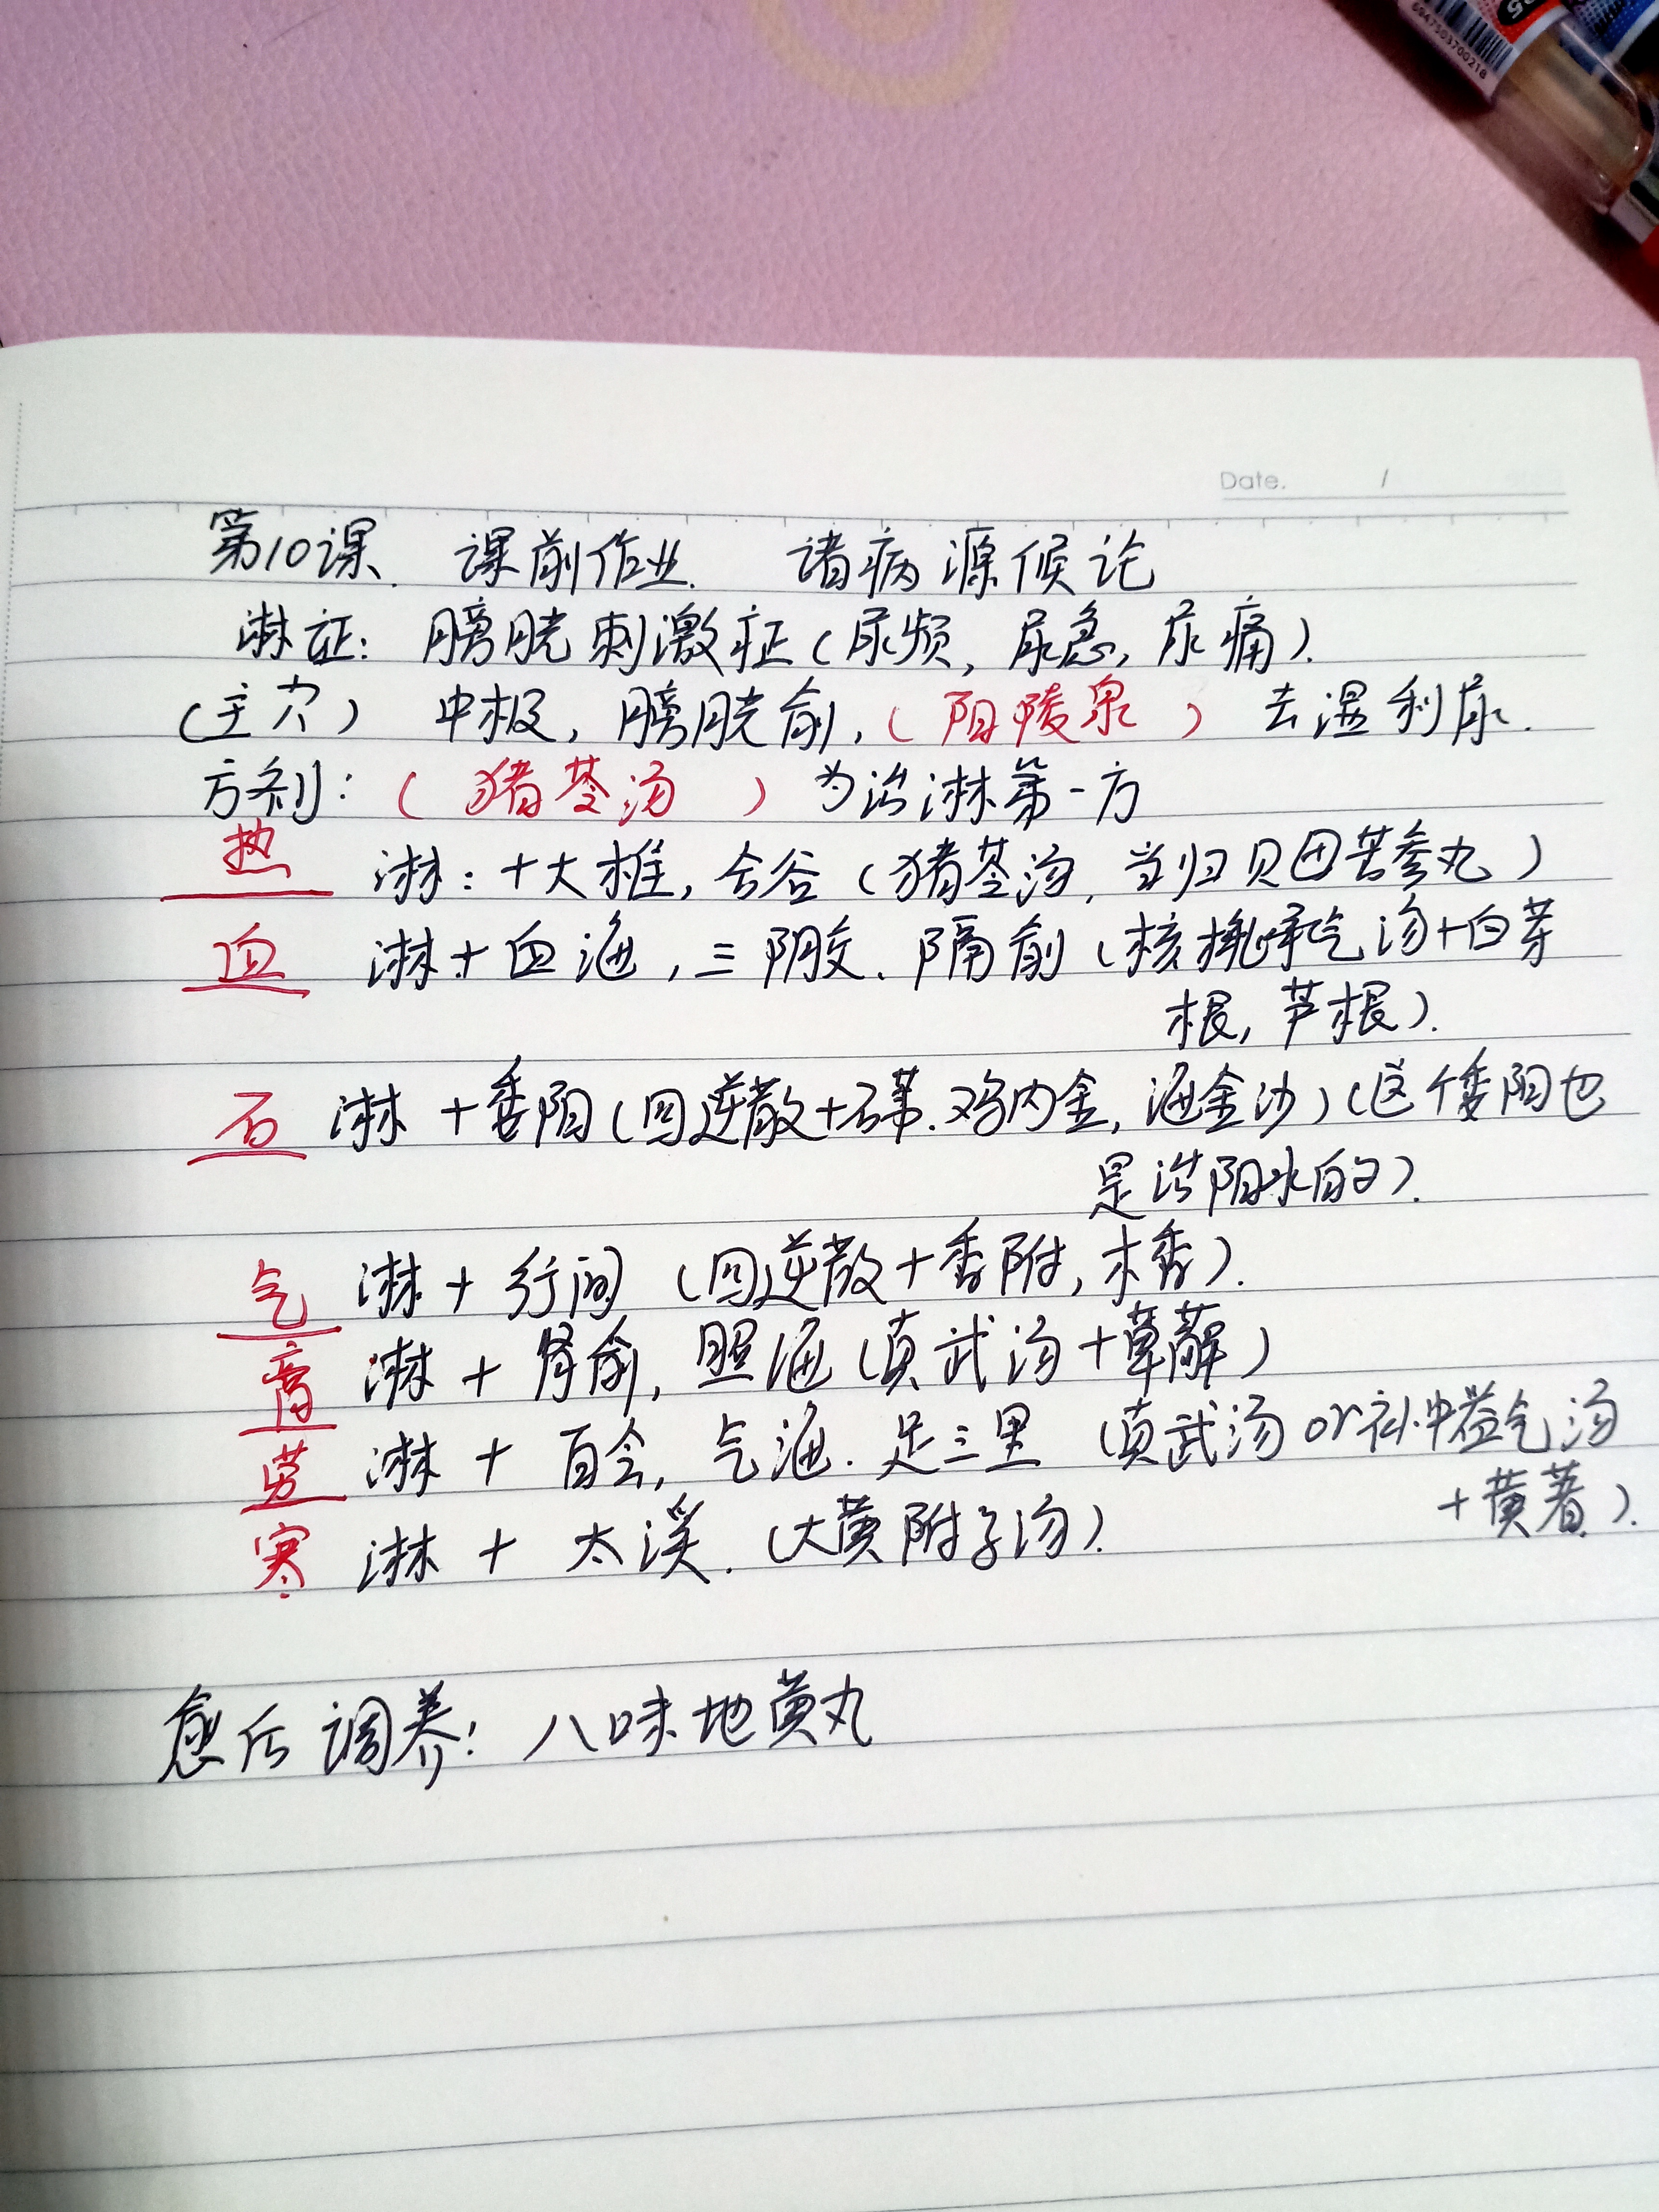 5
6947503700218
Date. /
第10课. 课前作业. 诸病源候论
淋证: 膀胱刺激症(尿频, 尿急, 尿痛).
(主穴) 中极, 膀胱俞, (阳陵泉) 去湿利尿.
方剂: (猪苓汤) 为治淋第一方
热 淋: +大椎, 合谷 (猪苓汤, 当归贝母苦参丸)
血 淋 + 血海, 三阴交. 隔俞 (核桃承气汤+白茅
根, 芦根).
石 淋 + 委阳(四逆散+石苇. 鸡内金, 海金沙)(这个委阳也
是治阳水的).
气 淋 + 行间 (四逆散+香附, 木香).
膏 淋 + 肾俞, 照海 (真武汤+萆薢)
劳 淋 + 百会, 气海. 足三里 (真武汤 or 补中益气汤
+黄蓍).
寒 淋 + 太溪. (大黄附子汤).
愈后调养: 八味地黄丸